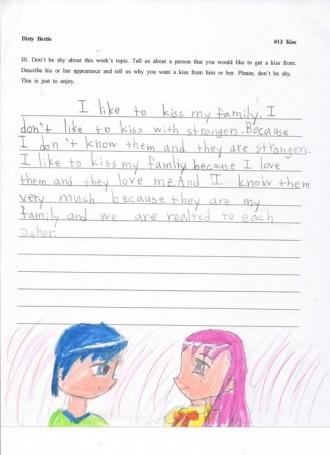 Dirty Bertie
#13 Kiss
III. Don't be shy about this week's topic. Tell us about a person that you would like to get a kiss from.
Describe his or her appearance and tell us why you want a kiss from him or her. Please, don't be shy.
This is just to enjoy.
I like to kiss my family. I
don't like to kiss with strangers. Because
I don't know them and they are strangers.
I like to kiss my famliy because I love
them and they love me. And I know them
very much because they are my
family and we are realted to each
other.